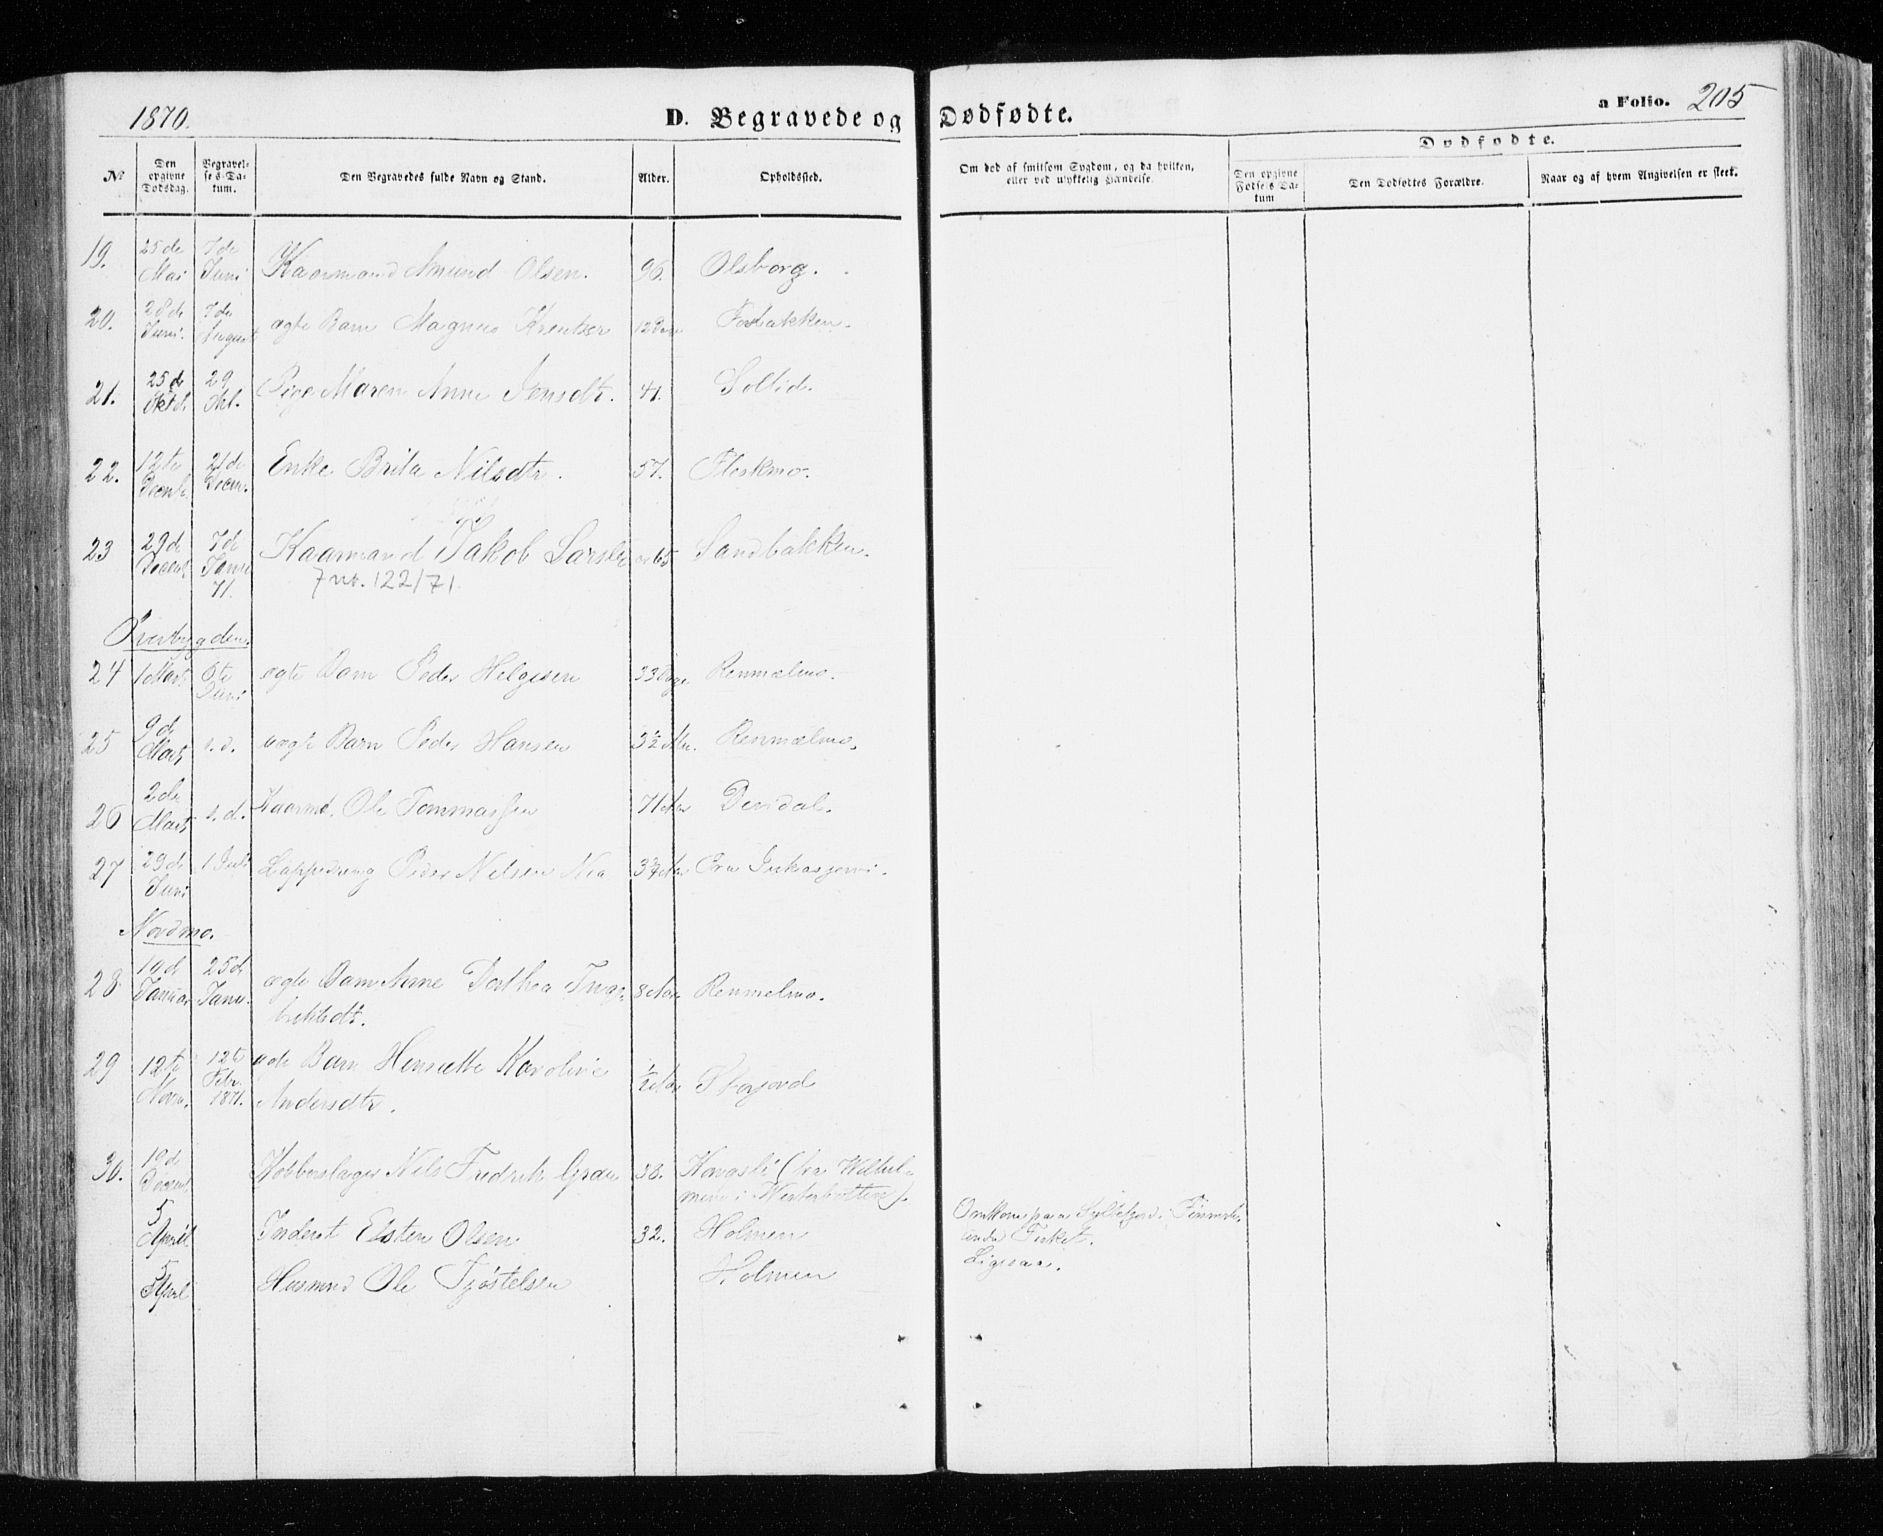 1870.
D. Begravede og Dødfødte.
a Folio. 205
Dødfødte.
No
Den opgivne Dødsdag.
Begravelses Datum.
Den Begravedes fulde Navn og Stand.
Alder.
Opholdssted.
Om død af smitsom Sygdom, og da hvilken, eller ved ulykkelig Hændelse.
Den opgivne Fødsels Datum
Den Dødfødtes Forældre.
Naar og af hvem Angivelsen er skeet.
19. 25de Mai 7de Juni Kaarmand Amund Olsen. 96. Olsborg.
20. 28de Juni. 7de August ægte Barn Magnus Krentzer 12 Dage Fosbakken.
21. 25d Oktb. 29 Pige Maren Anne Jensdtr. 41. Sollid.
22. 12te Decemb. 21de Decem. Enke Brita Nilsdtr. 57. Fleskmo.
23 29de Decemb. 7de Janu 71. Kaarmand Jakob Larsen 65 Sandbakken.
7 nr. 122/71.
Øverbygden.
24 1 Marts 6te Juni ægte Barn Peder Helgesen 33 Dage Renmælmo.
25 9d Marts s. d. uægte Barn Peder Hansen 3 1/2 Renmælmo.
26 2de Marts s. d. Kaarmd. Ole Tommassen 71 Aar Devidal.
27 29d Juni 1 Juli Lappedreng Peder Nilsen Nia Fra Jukasjervi.
Nordmo.
28 19d Januar 25d Janu. ægte Barn Anne Dorthea Ingebriktsdt. 8 Aar Renmelmo.
29 12te Novem. 12te Febr. 1871. Barn Henriette Karoline Andersdtr. 1/2 Aar Storjord
30. 19d Decemb. Kobberslager Nils Fredrik Gran 38. (fra Wilhelmina i Westerbotten).
5 April Inderst Elsten Olsen 32. Holmen Omkom paa Syltefjord i Finmarken under Fisket.
5 April Husmand Ole Tjøstelsen Holmen Ligesaa.